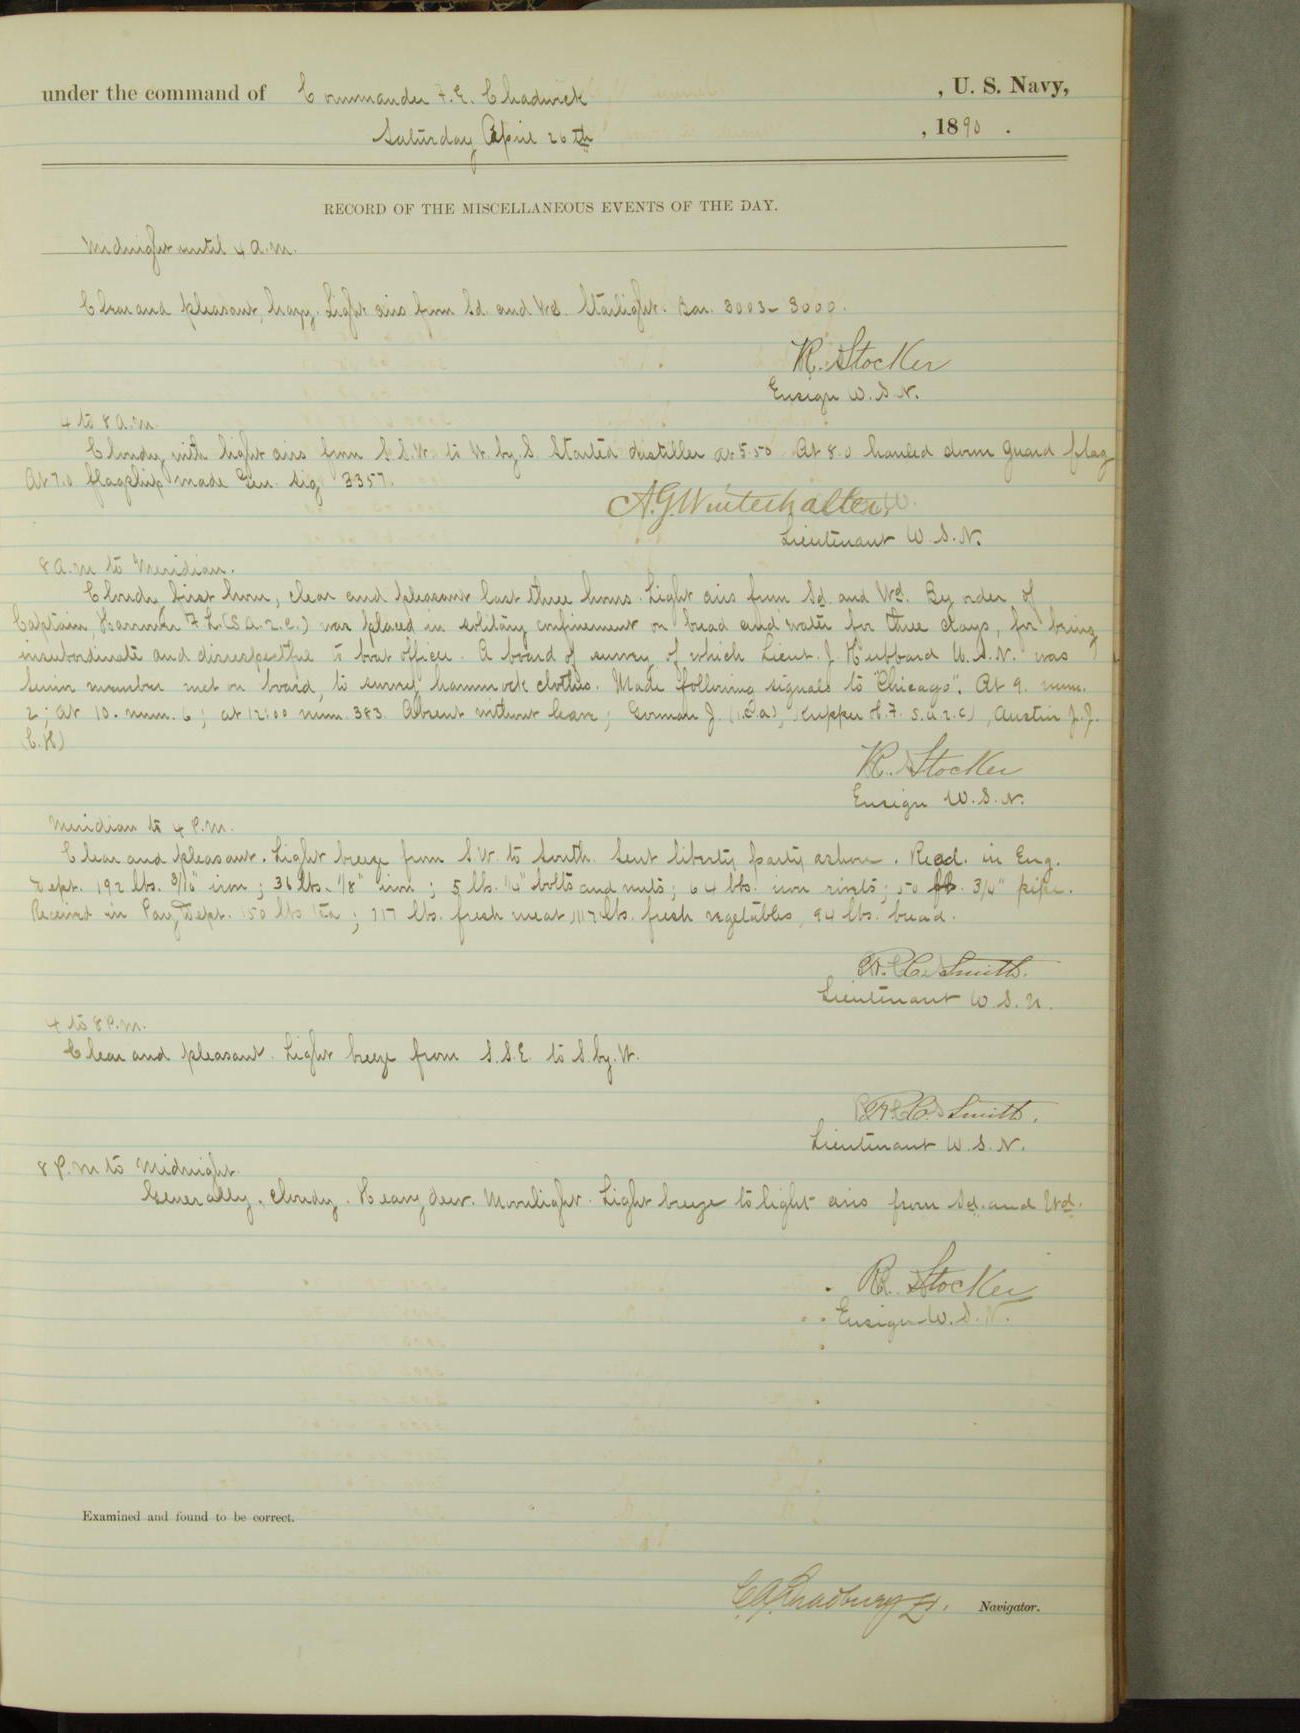 under the command of Commander F. E. Chadwick , U. S. Navy,
Saturday April 26th , 1890 .
RECORD OF THE MISCELLANEOUS EVENTS OF THE DAY.
Midnight until 4 A.M.
Clear and pleasant, hazy. Light airs from Sd. and Wd. Starlight. Bar. 3003 - 3000.
R. Stocker
Ensign U.S.N.
4 to 8 A.M.
Cloudy with light airs from S.S.W. to W. by S. Started distiller at 5.50 At 8.0 hauled down guard flag
At 7.0 flagship made Gen. Sig. 3357.
A.G. Winterhalter
Lieutenant U.S.N.
8 A.M. to Meridian.
Cloudy first hour, clear and pleasant last three hours. Light airs from Sd. and Wd. By order of
Captain, F. L. (S.A.2.C.) was placed in solitary confinement on bread and water for three days, for being
insubordinate and disrespectful to boat officer. A board of survey of which Lieut. J. Hubbard U.S.N. was
Senior member met on board, to survey hammock clothes. Made following signals to "Chicago". At 9. num.
2; at 10. num. 6; at 12:00 num. 383. Absent without leave; Gorman J. H. F. S.A.2.C), Austin J. J.
R. Stocker
Ensign U.S.N.
Meridian to 4 P.M.
Clear and pleasant. Light breeze from S.W. to South. Sent liberty party ashore. Recd. in Eng.
Dept. 192 lbs. 3/16" iron; 36 lbs. 1/8" iron; 5 lbs. 1/4" bolts and nuts; 64 lbs. iron rivets; 50 ft. 3/4" pipe.
Received in Pay Dept. 150 lbs tea; 117 lbs. fresh meat, 117 lbs. fresh vegetables, 94 lbs. bread.
R. C. Smith.
Lieutenant U.S.N.
4 to 8 P.M.
Clear and pleasant. Light breeze from S.S.E. to S. by W.
R. C. Smith.
Lieutenant U.S.N.
8 P.M. to Midnight.
Generally cloudy. Heavy dew. Moonlight. Light breeze to light airs from Sd. and Wd.
R. Stocker
Ensign U.S.N.
Examined and found to be correct.
C. A. Bradbury Lt. Navigator.